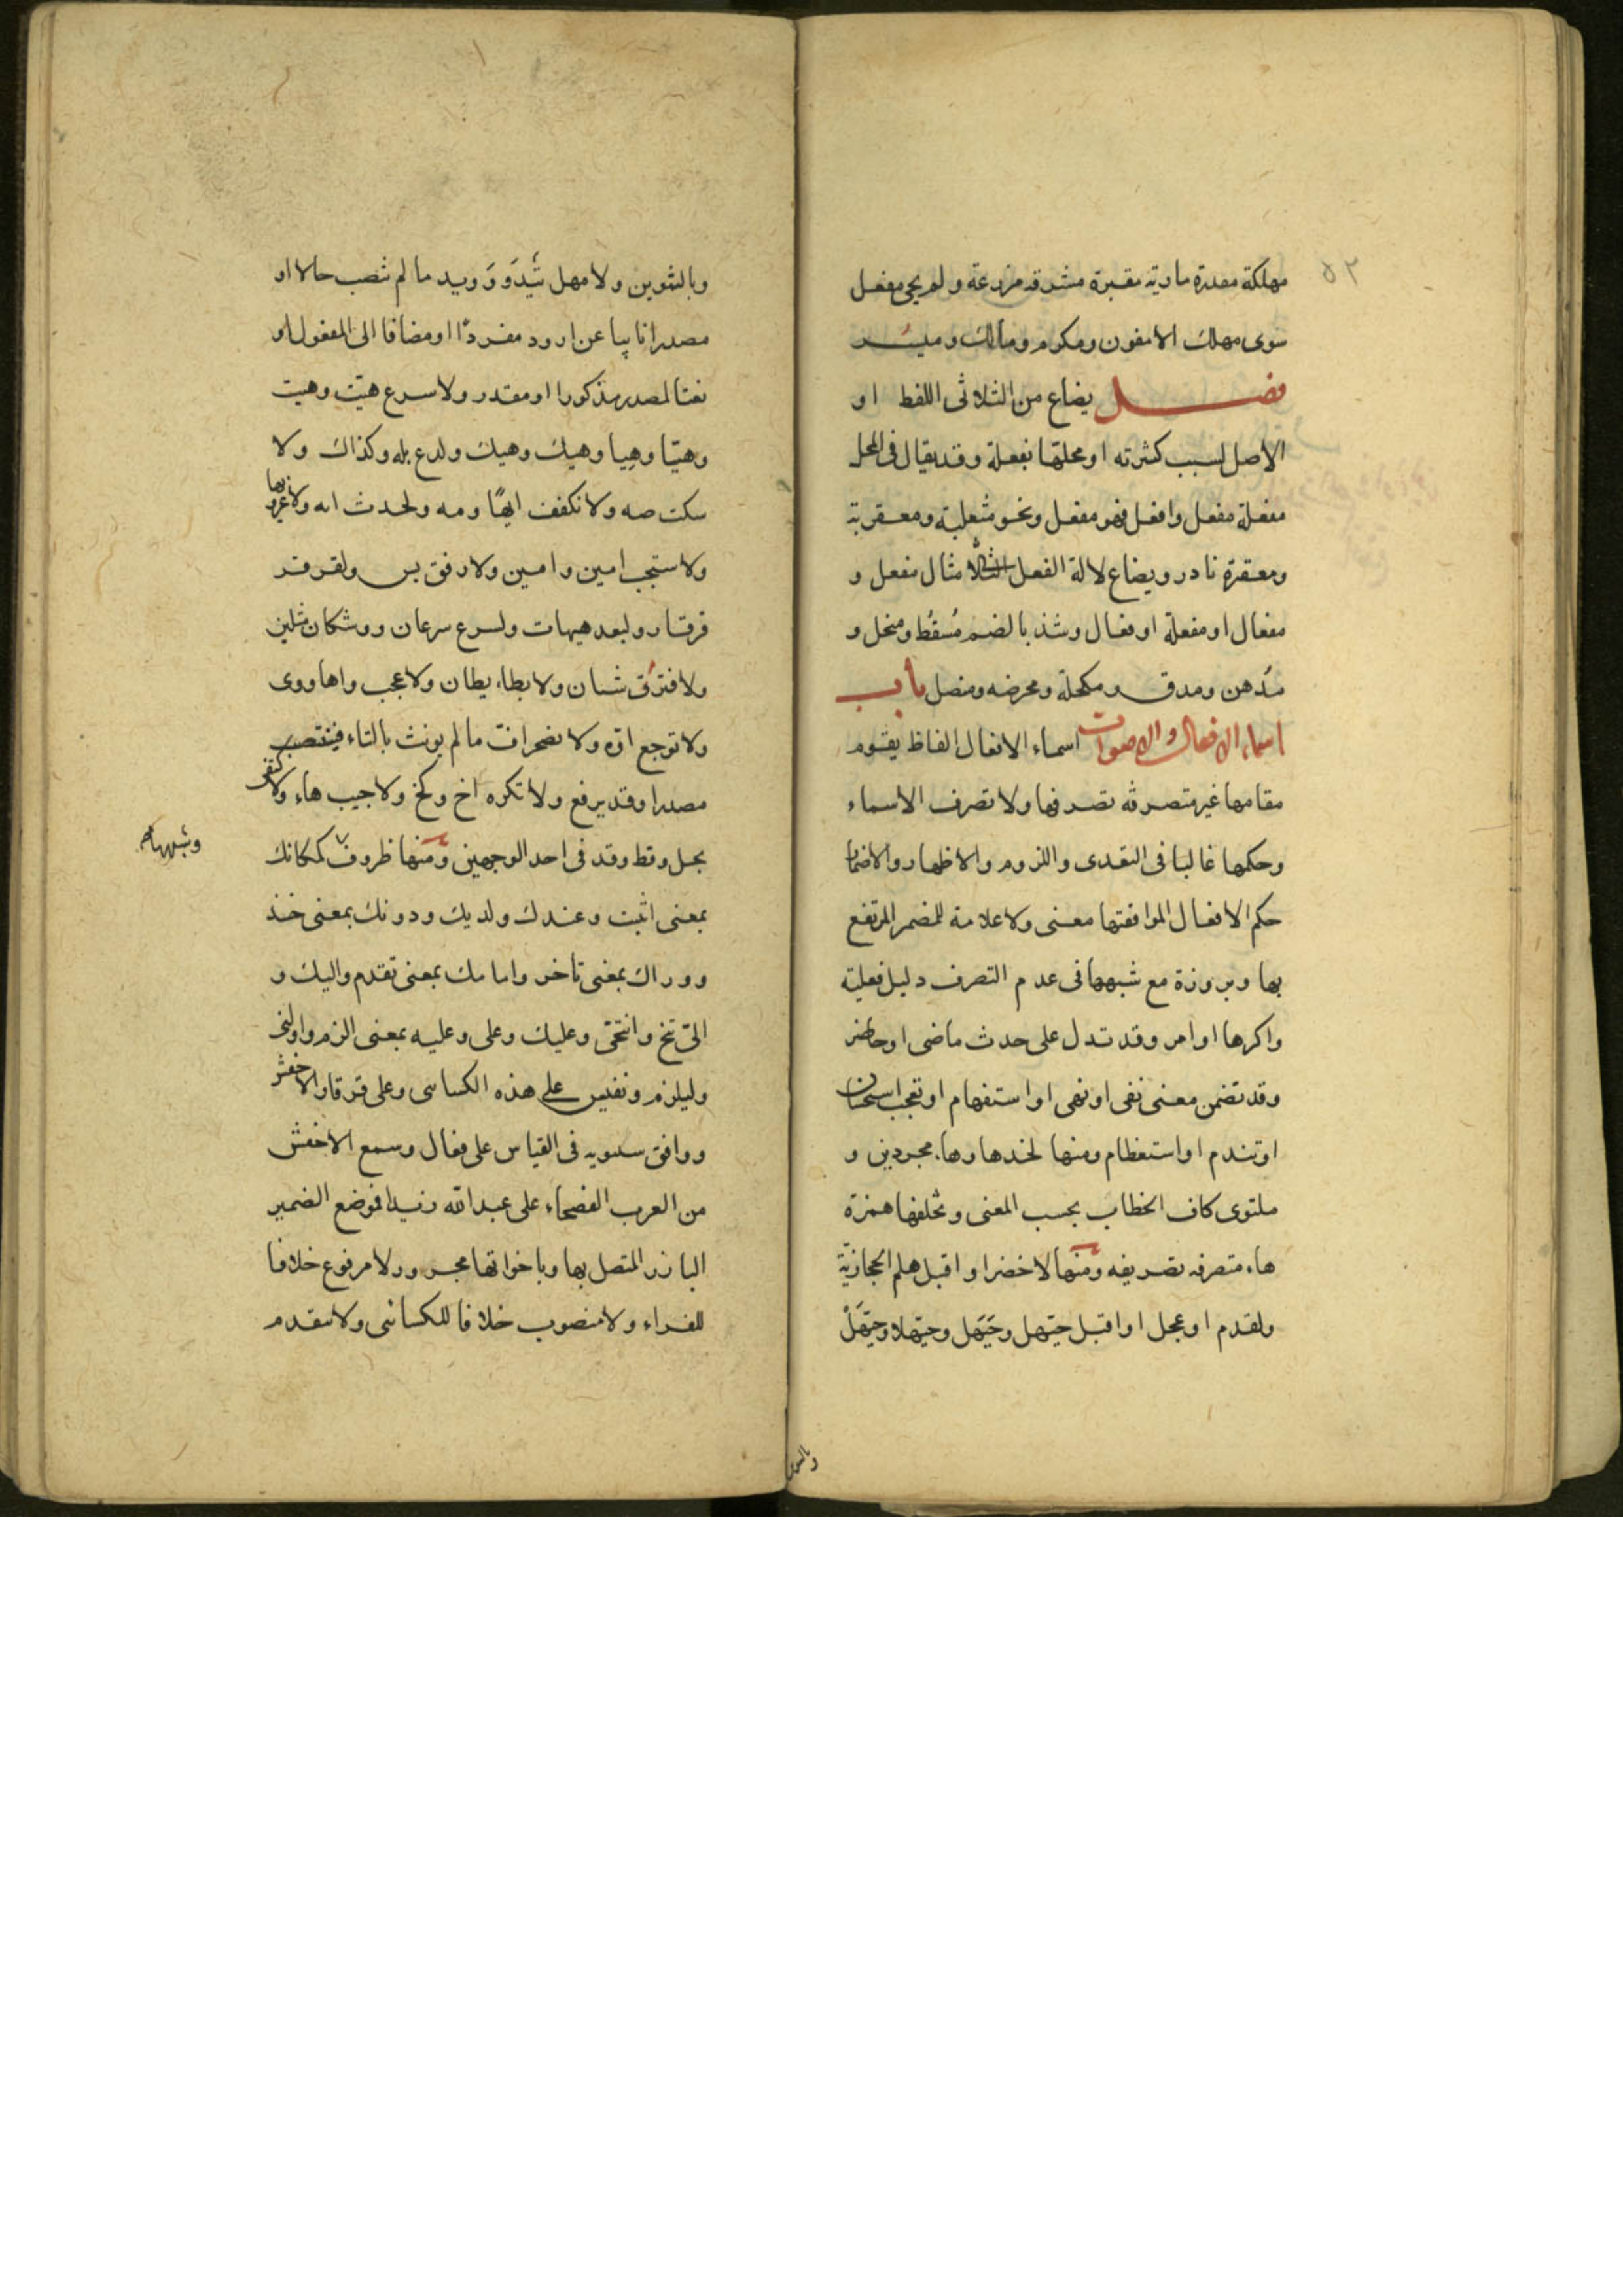 ٥٢
مهلكة مقدرة مادبة مقبرة مشرقة مزرعة ولم يجى مفعل
سوى مهلك الا معون ومكرم ومالك وميسر
فصل يصاغ من الثلاثى اللفظ او
الاصل لسبب كثرته او محلها مفعلة وقد يقال فى المحل
مفعلة مفعل وافعل فهو مفعل ونحو مثعلبة ومعقربة
ومعقرة نادر ويصاغ لالة الفعل الثلاثى مثال مفعل و
مفعال او مفعلة او فعال وشذ بالضم مُسقُط ومنخل و
مُدهن ومدق ومكحلة ومحرضه ومنصل باب
اسماء الافعال والاصوات اسماء الافعال الفاظ يقوم
مقامها غير متصرفة تصرفها ولا تصرف الاسماء
وحكمها غالبا فى التعدى واللزوم والاظهار والاضمار
حكم الافعال الموافقتها معنى ولا علامة للمضمر المرتفع
بها وبروزه مع شبهها فى عدم التصرف دليل فعلية
واكرها اوامر وقد تدل على حدث ماضى او حاضر
وقد تضمن معنى نفى او نهى او استفهام او تعجب استحسان
او تندم او استعظام ومنها لخذ ها وهاء مجردين و
ملتوى كاف الخطاب بحسب المعنى وتخلفها همزة
هاء متصرفه تصريفه ومنها لاحضر او اقبل هلم الحجازية
ولقدم او عجل او اقبل حيّهل وحَيَهَل وحيّهلا وحيّهَلْ
وبالتنوين
وبالتنوين ولا مهل تَيْدَ ورويد ما لم ينصب حالا او
مصدرا نايبا عن ارود مفردًا او مضافا الى المفعول او
نعتا لمصدر مذكورا او مقدر ولا سرع هيّت وهيت
وهيّتا وهيا وهيك وهيك ولدع بله وكذاك ولا
سكت صه ولا نكفف ايهًا ومه ولحدث ايه ولا غر ويها
ولا ستجب امين وامين ولا رفق بس ولقرقر
قرقار ولبعد هيهات ولسرع سرعان ووشكان مثلين
ولا فترق شتان ولا بطاء بطان ولا عجب واها ووى
ولا توجع اوّه ولا تضجر افّ ما لم يونث بالتاء فينتصب
مصدرا وقد يرفع ولا تكره اخ وكخ ولا جيب هاء ولا كتفى
بجل وقط وقد فى احد الوجهين ومنها ظروف كمكانك
وشبهها
بمعنى اثبت وعندك ولديك ودونك بمعنى خذ
ووراك بمعنى تاخر وامامك بمعنى تقدم واليك و
الىّ تنح وانتحى وعليك وعلى وعليه بمعنى الزم واولنى
وليلزم ونفيس على هذه الكسائى وعلى قرقار الاخفش
ووافق سيبويه فى القياس على فعال وسمع الاخفش
من العرب الفصحاء على عبدالله زيدا فموضع الضمير
البارز المتصل بها وباخواتها مجرور لا مرفوع خلافا
للفراء ولا منصوب خلافا للكسائى ولا يتقدم